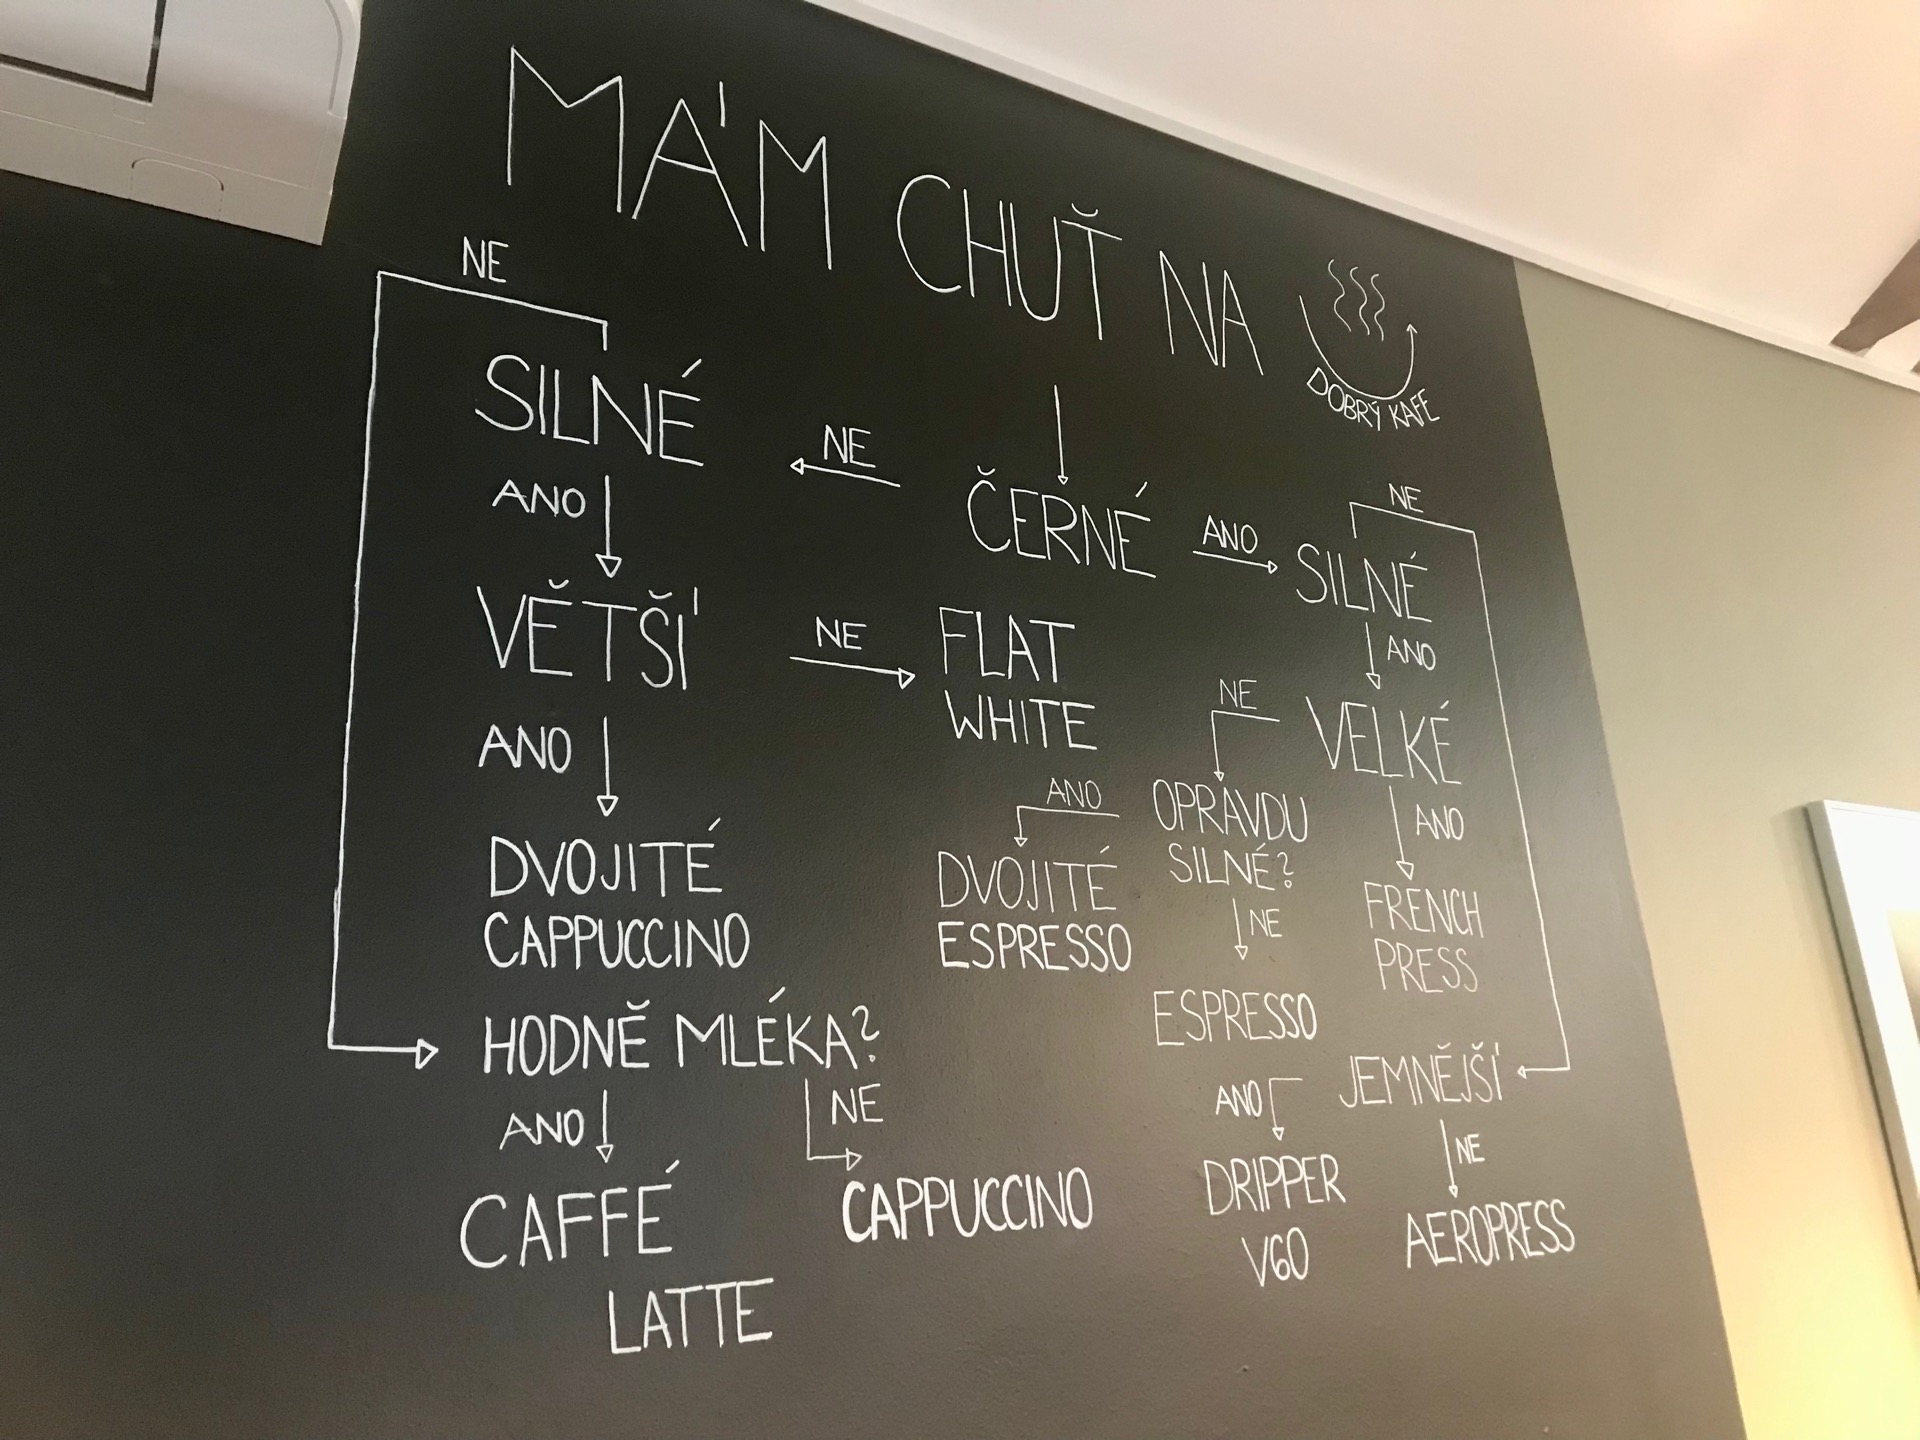 MÁM CHUŤ NA
DOBRÝ KAFE
NE
SILNÉ
NE
ČERNÉ
ANO
SILNÉ
NE
ANO
VĚTŠÍ
NE
FLAT
WHITE
ANO
VELKÉ
NE
ANO
DVOJITÉ
CAPPUCCINO
ANO
OPRAVDU
SILNÉ?
DVOJITÉ
ESPRESSO
NE
ESPRESSO
ANO
FRENCH
PRESS
HODNĚ MLÉKA?
ANO
NE
CAFFÉ
LATTE
CAPPUCCINO
JEMNĚJŠÍ
ANO
NE
DRIPPER
V60
AEROPRESS